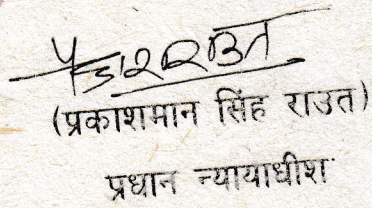 (प्रकाशमान सिंह राउत)
प्रधान न्यायाधीश